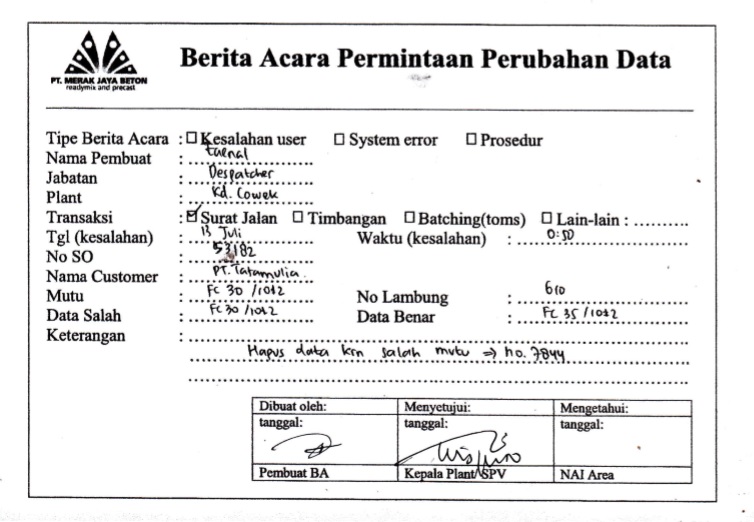 PT. MERAK JAYA BETON
readymix and precast
Berita Acara Permintaan Perubahan Data
Tipe Berita Acara : ☐ Kesalahan user ☐ System error ☐ Prosedur
Nama Pembuat :
Jabatan : Despatcher
Plant : Kd. Cowek
Transaksi : ☑ Surat Jalan ☐ Timbangan ☐ Batching(toms) ☐ Lain-lain : ..........
Tgl (kesalahan) : 13 Juli Waktu (kesalahan) : 0:50
No SO : 53182
Nama Customer : PT. Tatamulia.
Mutu : FC 30 /10±2 No Lambung : 610
Data Salah : FC 30 /10±2 Data Benar : FC 35 /10±2
Keterangan :
Hapus data krn salah mutu => no. 7844
Dibuat oleh: Menyetujui: Mengetahui:
tanggal: tanggal: tanggal:
Pembuat BA Kepala Plant/SPV NAI Area